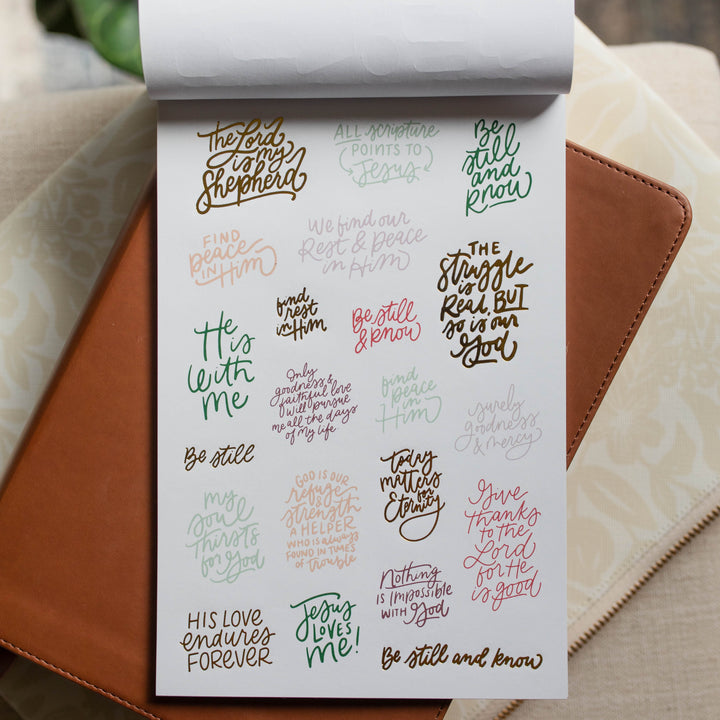 The Lord
is my
Shepherd
All scripture
points to
Jesus
Be
still
and
know
Find
peace
in Him
We find our
Rest & peace
in Him
THE
Struggle
is
Real, BUT
so is our
God
He
is
with
me
find
rest
in Him
Be still
& know
Only
goodness &
faithful love
will pursue
me all the days
of my life
find
peace
in
Him
surely
goodness
& mercy
Be still
my
soul
thirsts
for God
GOD IS OUR
refuge
&
strength
A HELPER
WHO IS always
FOUND IN TIMES
of trouble
Today
matters
for
Eternity
Give
thanks
to the
Lord
for He
is good
HIS LOVE
endures
FOREVER
Jesus
LOVES
me!
Nothing
is impossible
with God
Be still and know